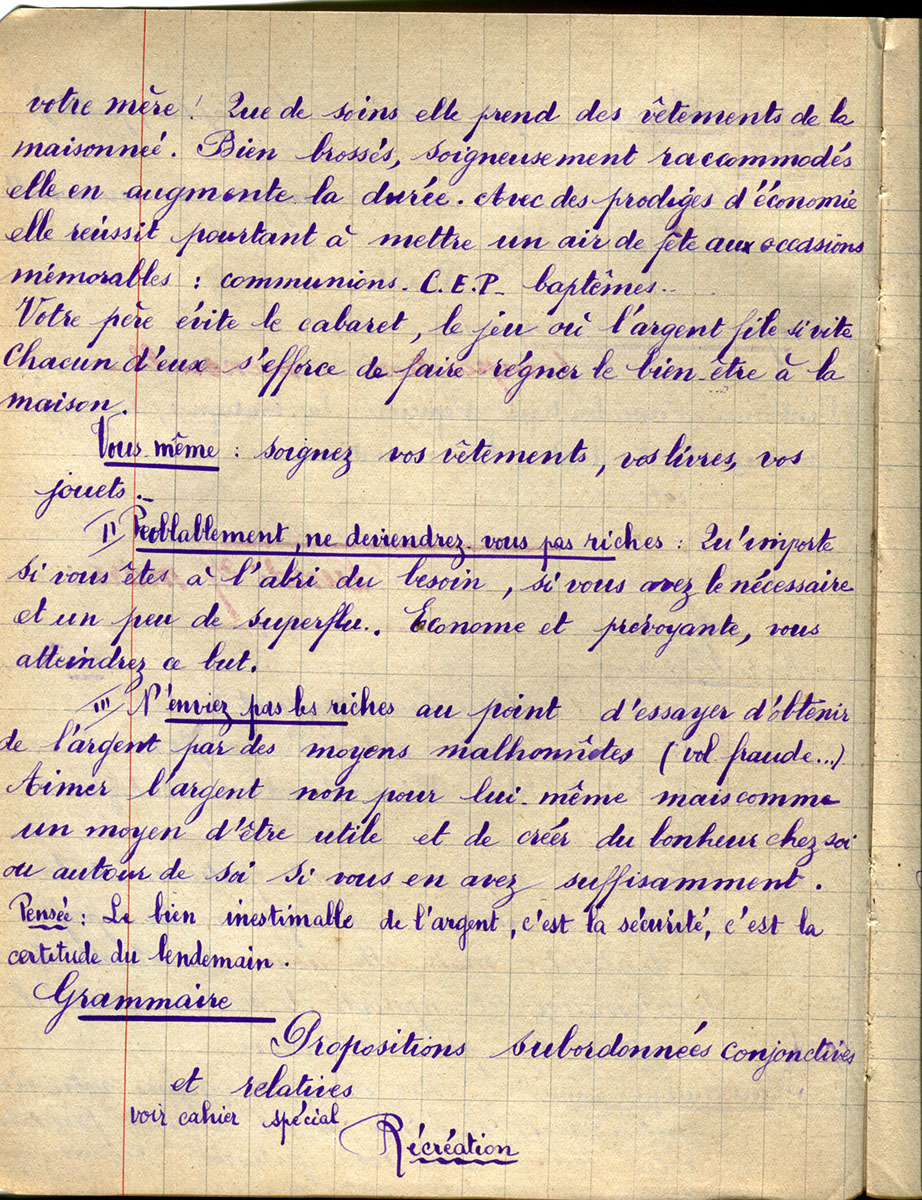 votre mère ! Que de soins elle prend des vêtements de la
maisonneé. Bien brossés, soigneusement raccommodés
elle en augmente la durée. Avec des prodiges d'économie
elle reússit pourtant à mettre un air de fête aux occasions
mémorables : communions. C.E.P_ baptêmes..
Votre père évite le cabaret, le jeu où l'argent file si vite
Chacun d'eux s'efforce de faire régner le bien-être à la
maison.
Vous même : soignez vos vêtements, vos livres, vos
jouets._
II Probablement, ne deviendrez-vous pas riches : Qu'importe
si vous êtes à l'abri du besoin, si vous avez le nécessaire
et un peu de superflu. Econome et prévoyante, vous
atteindrez ce but.
III N'enviez pas les riches au point d'essayer d'obtenir
de l'argent par des moyens malhonnêtes (vol fraude...)
Aimer l'argent non pour lui-même mais comme
un moyen d'être utile et de créer du bonheur chez soi
ou autour de soi si vous en avez suffisamment.
Pensée : Le bien inestimable de l'argent, c'est la sécurité, c'est la
certitude du lendemain.
Grammaire
Propositions subordonnées conjonctives
et relatives
voir cahier spécial
Récréation